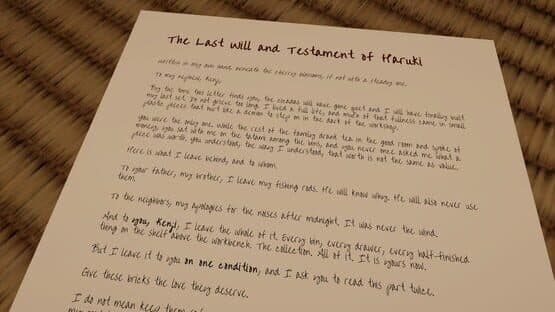 The Last Will and Testament of Haruki
Written in my own hand, beneath the cherry blossoms, if not with a steady one.
To my nephew, Kenji,
By the time this letter finds you, the cicadas will have gone quiet and I will have finally built
my last set. Do not grieve too long. I lived a full life, and much of that fullness came in small
plastic pieces that hurt like a demon to step on in the dark of the workshop.
You were the only one, while the rest of the family drank tea in the good room and spoke of
money, you sat with me on the tatami among the bins, and you never once asked me what a
piece was worth, you understood, the way I understood, that worth is not the same as value.
Here is what I leave behind, and to whom.
To your father, my brother, I leave my fishing rods. He will know why. He will also never use
them.
To the neighbors, my apologies for the noises after midnight. It was never the wind.
And to you, Kenji, I leave the whole of it. Every bin, every drawer, every half-finished
thing on the shelf above the workbench. The collection. All of it. It is yours now.
But I leave it to you on one condition, and I ask you to read this part twice.
Give these bricks the love they deserve.
I do not mean keep them